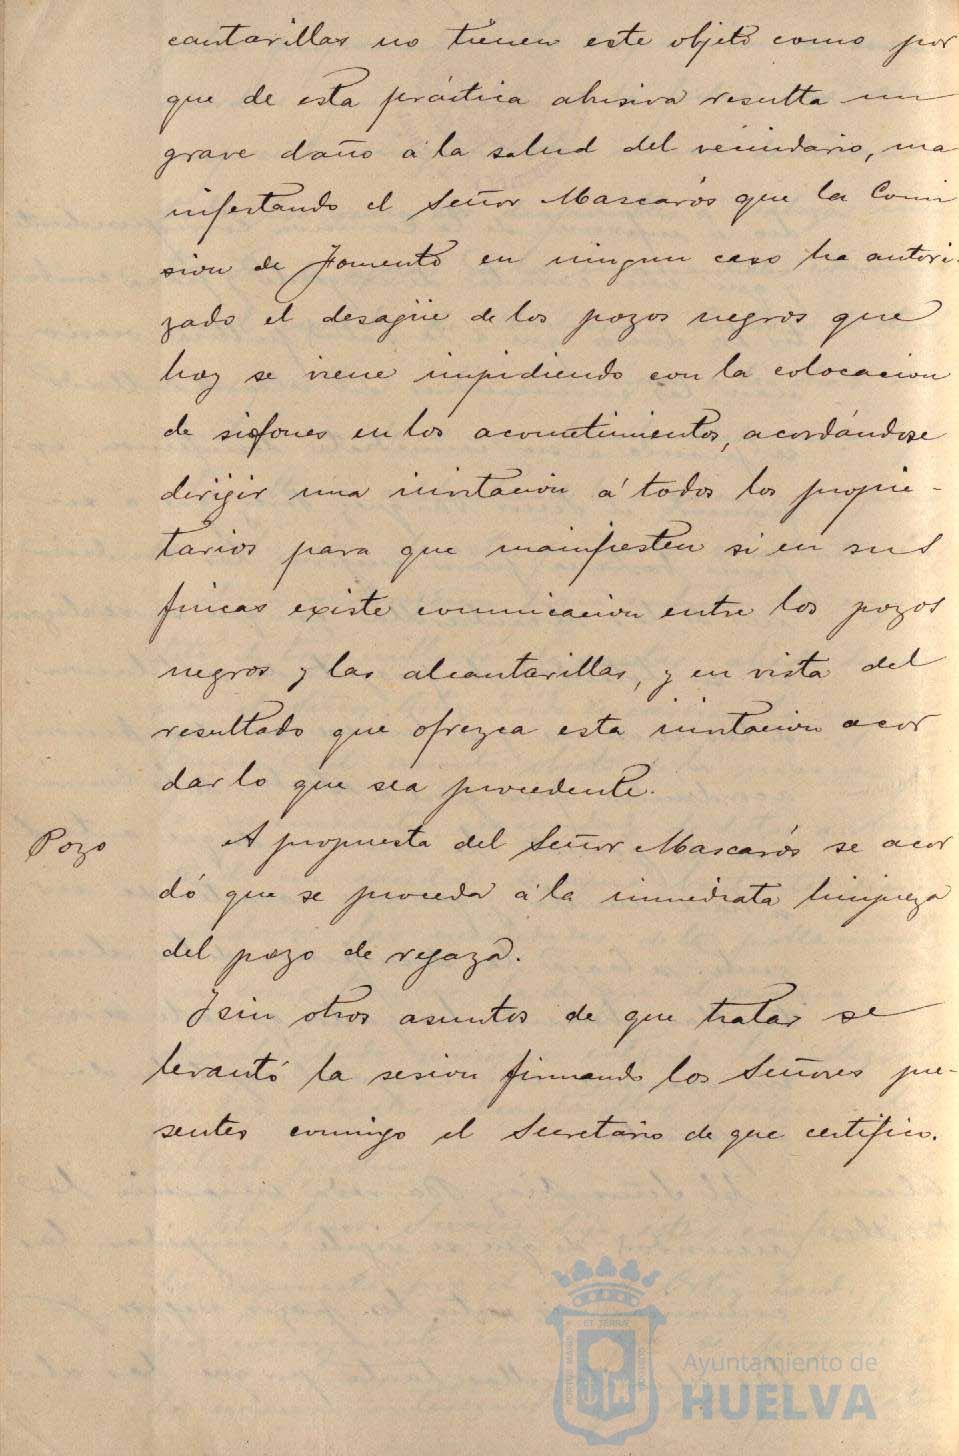 cantarillas no tienen este objeto como por
que de esta práctica abusiva resulta un
grave daño á la salud del vecindario, ma
nifestando el Señor Mascarós que la Comi
sion de Fomento en ningun caso ha autori-
zado el desagüe de los pozos negros que
hoy se viene impidiendo con la colocacion
de sifones en los acometimientos, acordándose
dirigir una invitacion á todos los propie-
tarios para que manifiesten si en sus
fincas existe comunicacion entre los pozos
negros y las alcantarillas, y en vista del
resultado que ofrezca esta invitacion acor
dar lo que sea procedente.
Pozo A propuesta del Señor Mascarós se acor
dó que se proceda á la inmediata limpieza
del pozo de
Y sin otros asuntos de que tratar se
levantó la sesion firmando los Señores pre-
sentes conmigo el Secretario de que certifico.
Ayuntamiento de
HUELVA